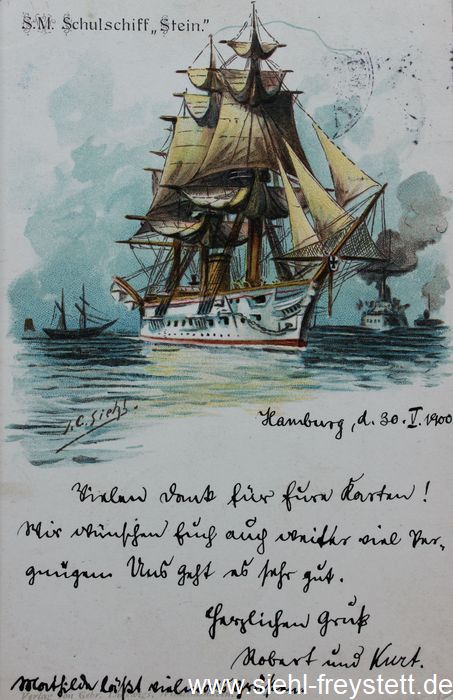 S.M. Schulschiff „Stein."
J.C. Siehl.
Hamburg, d. 30. V. 1900
Vielen Dank für Eure Karten!
Wir wünschen Euch auch weiter viel Ver-
gnügen. Uns geht es sehr gut.
Herzlichen Gruß
Robert und Kurt.
Mathilde läßt vielmals grüßen.
www.siehl-freystett.de